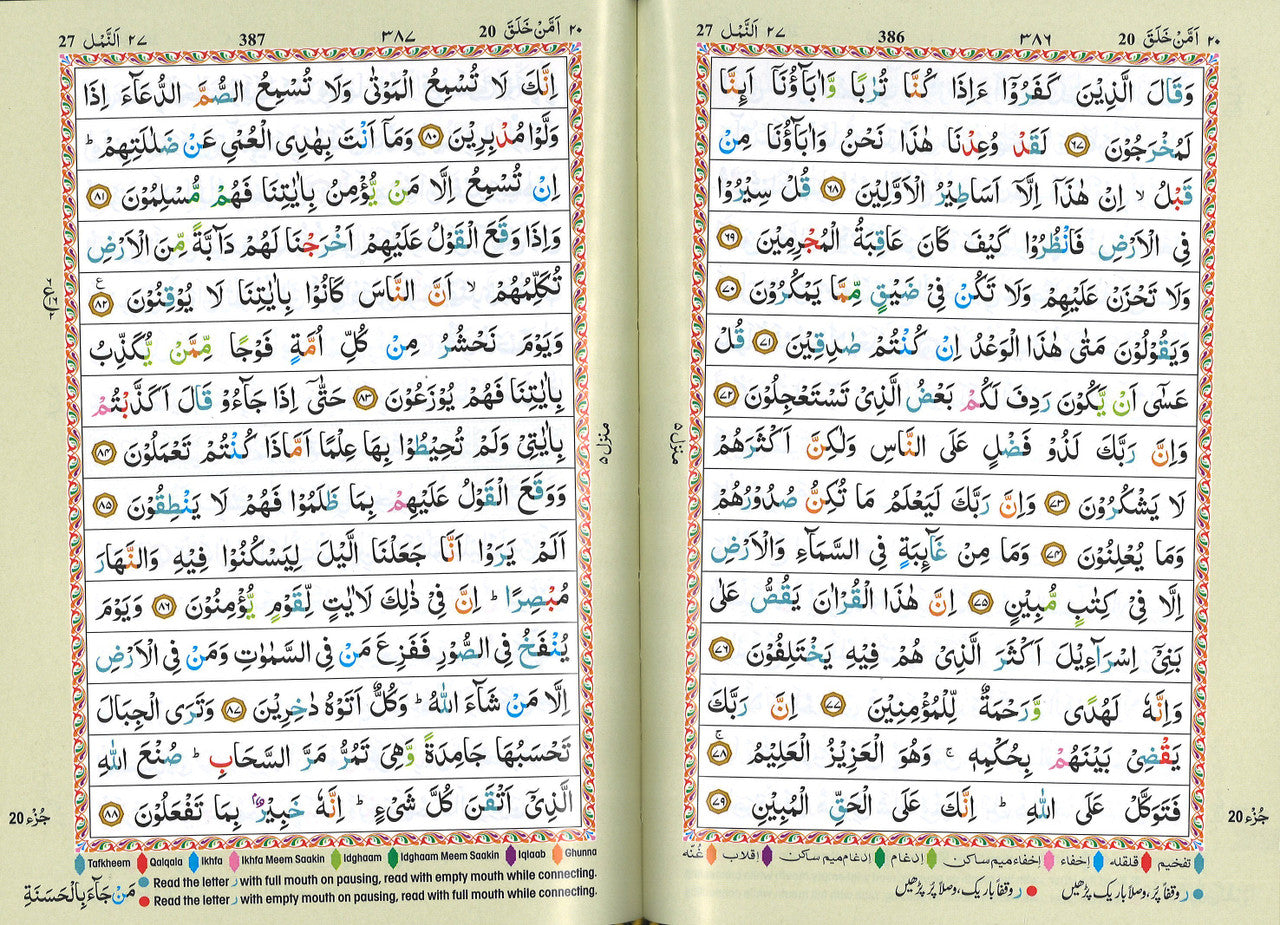 ٢٠ اَمَّنْ خَلَقَ 20 ٣٨٦ 386 ٢٧ اَلنَّمْل 27
وَقَالَ الَّذِيْنَ كَفَرُوْٓا ءَاِذَا كُنَّا تُرٰبًا وَّاٰبَآؤُنَآ اَئِنَّا
لَمُخْرَجُوْنَ ٦٧ لَقَدْ وُعِدْنَا هٰذَا نَحْنُ وَاٰبَآؤُنَا مِنْ
قَبْلُ ۙ اِنْ هٰذَآ اِلَّآ اَسَاطِيْرُ الْاَوَّلِيْنَ ٦٨ قُلْ سِيْرُوْا
فِى الْاَرْضِ فَانْظُرُوْا كَيْفَ كَانَ عَاقِبَةُ الْمُجْرِمِيْنَ ٦٩
وَلَا تَحْزَنْ عَلَيْهِمْ وَلَا تَكُنْ فِىْ ضَيْقٍ مِّمَّا يَمْكُرُوْنَ ٧٠
وَيَقُوْلُوْنَ مَتٰى هٰذَا الْوَعْدُ اِنْ كُنْتُمْ صٰدِقِيْنَ ٧١ قُلْ
عَسٰٓى اَنْ يَّكُوْنَ رَدِفَ لَكُمْ بَعْضُ الَّذِىْ تَسْتَعْجِلُوْنَ ٧٢
وَاِنَّ رَبَّكَ لَذُوْ فَضْلٍ عَلَى النَّاسِ وَلٰكِنَّ اَكْثَرَهُمْ
لَا يَشْكُرُوْنَ ٧٣ وَاِنَّ رَبَّكَ لَيَعْلَمُ مَا تُكِنُّ صُدُوْرُهُمْ
وَمَا يُعْلِنُوْنَ ٧٤ وَمَا مِنْ غَآئِبَةٍ فِى السَّمَآءِ وَالْاَرْضِ
اِلَّا فِىْ كِتٰبٍ مُّبِيْنٍ ٧٥ اِنَّ هٰذَا الْقُرْاٰنَ يَقُصُّ عَلٰى
بَنِىْٓ اِسْرَآءِيْلَ اَكْثَرَ الَّذِىْ هُمْ فِيْهِ يَخْتَلِفُوْنَ ٧٦
وَاِنَّهٗ لَهُدًى وَّرَحْمَةٌ لِّلْمُؤْمِنِيْنَ ٧٧ اِنَّ رَبَّكَ
يَقْضِىْ بَيْنَهُمْ بِحُكْمِهٖ ۚ وَهُوَ الْعَزِيْزُ الْعَلِيْمُ ٧٨
فَتَوَكَّلْ عَلَى اللّٰهِ ؕ اِنَّكَ عَلَى الْحَقِّ الْمُبِيْنِ ٧٩
جُزْء 20
منزل ٥
تفخیم قلقله إخفاء إخفاءمیم ساکن إدغام إدغام میم ساکن إقلاب غُنّه
ر وقفاً پُر، وصلاً باریک پڑھیں ر وقفاً باریک، وصلاً پُر پڑھیں
٢٠ اَمَّنْ خَلَقَ 20 ٣٨٧ 387 ٢٧ اَلنَّمْل 27
اِنَّكَ لَا تُسْمِعُ الْمَوْتٰى وَلَا تُسْمِعُ الصُّمَّ الدُّعَآءَ اِذَا
وَلَّوْا مُدْبِرِيْنَ ٨٠ وَمَآ اَنْتَ بِهٰدِى الْعُمْىِ عَنْ ضَلٰلَتِهِمْ ؕ
اِنْ تُسْمِعُ اِلَّا مَنْ يُّؤْمِنُ بِاٰيٰتِنَا فَهُمْ مُّسْلِمُوْنَ ٨١
وَاِذَا وَقَعَ الْقَوْلُ عَلَيْهِمْ اَخْرَجْنَا لَهُمْ دَآبَّةً مِّنَ الْاَرْضِ
تُكَلِّمُهُمْ ۙ اَنَّ النَّاسَ كَانُوْا بِاٰيٰتِنَا لَا يُوْقِنُوْنَ ٨٢
وَيَوْمَ نَحْشُرُ مِنْ كُلِّ اُمَّةٍ فَوْجًا مِّمَّنْ يُّكَذِّبُ
بِاٰيٰتِنَا فَهُمْ يُوْزَعُوْنَ ٨٣ حَتّٰٓى اِذَا جَآءُوْ قَالَ اَكَذَّبْتُمْ
بِاٰيٰتِىْ وَلَمْ تُحِيْطُوْا بِهَا عِلْمًا اَمَّاذَا كُنْتُمْ تَعْمَلُوْنَ ٨٤
وَوَقَعَ الْقَوْلُ عَلَيْهِمْ بِمَا ظَلَمُوْا فَهُمْ لَا يَنْطِقُوْنَ ٨٥
اَلَمْ يَرَوْا اَنَّا جَعَلْنَا الَّيْلَ لِيَسْكُنُوْا فِيْهِ وَالنَّهَارَ
مُبْصِرًا ؕ اِنَّ فِىْ ذٰلِكَ لَاٰيٰتٍ لِّقَوْمٍ يُّؤْمِنُوْنَ ٨٦ وَيَوْمَ
يُنْفَخُ فِى الصُّوْرِ فَفَزِعَ مَنْ فِى السَّمٰوٰتِ وَمَنْ فِى الْاَرْضِ
اِلَّا مَنْ شَآءَ اللّٰهُ ؕ وَكُلٌّ اَتَوْهُ دٰخِرِيْنَ ٨٧ وَتَرَى الْجِبَالَ
تَحْسَبُهَا جَامِدَةً وَّهِىَ تَمُرُّ مَرَّ السَّحَابِ ؕ صُنْعَ اللّٰهِ
الَّذِىْٓ اَتْقَنَ كُلَّ شَىْءٍ ؕ اِنَّهٗ خَبِيْرٌۢ بِمَا تَفْعَلُوْنَ ٨٨
جُزْء 20
منزل ٥
Tafkheem Qalqala Ikhfa Ikhfa Meem Saakin Idghaam Idghaam Meem Saakin Iqlaab Ghunna
Read the letter ر with full mouth on pausing, read with empty mouth while connecting.
Read the letter ر with empty mouth on pausing, read with full mouth while connecting.
مَنْ جَآءَ بِالْحَسَنَةِ